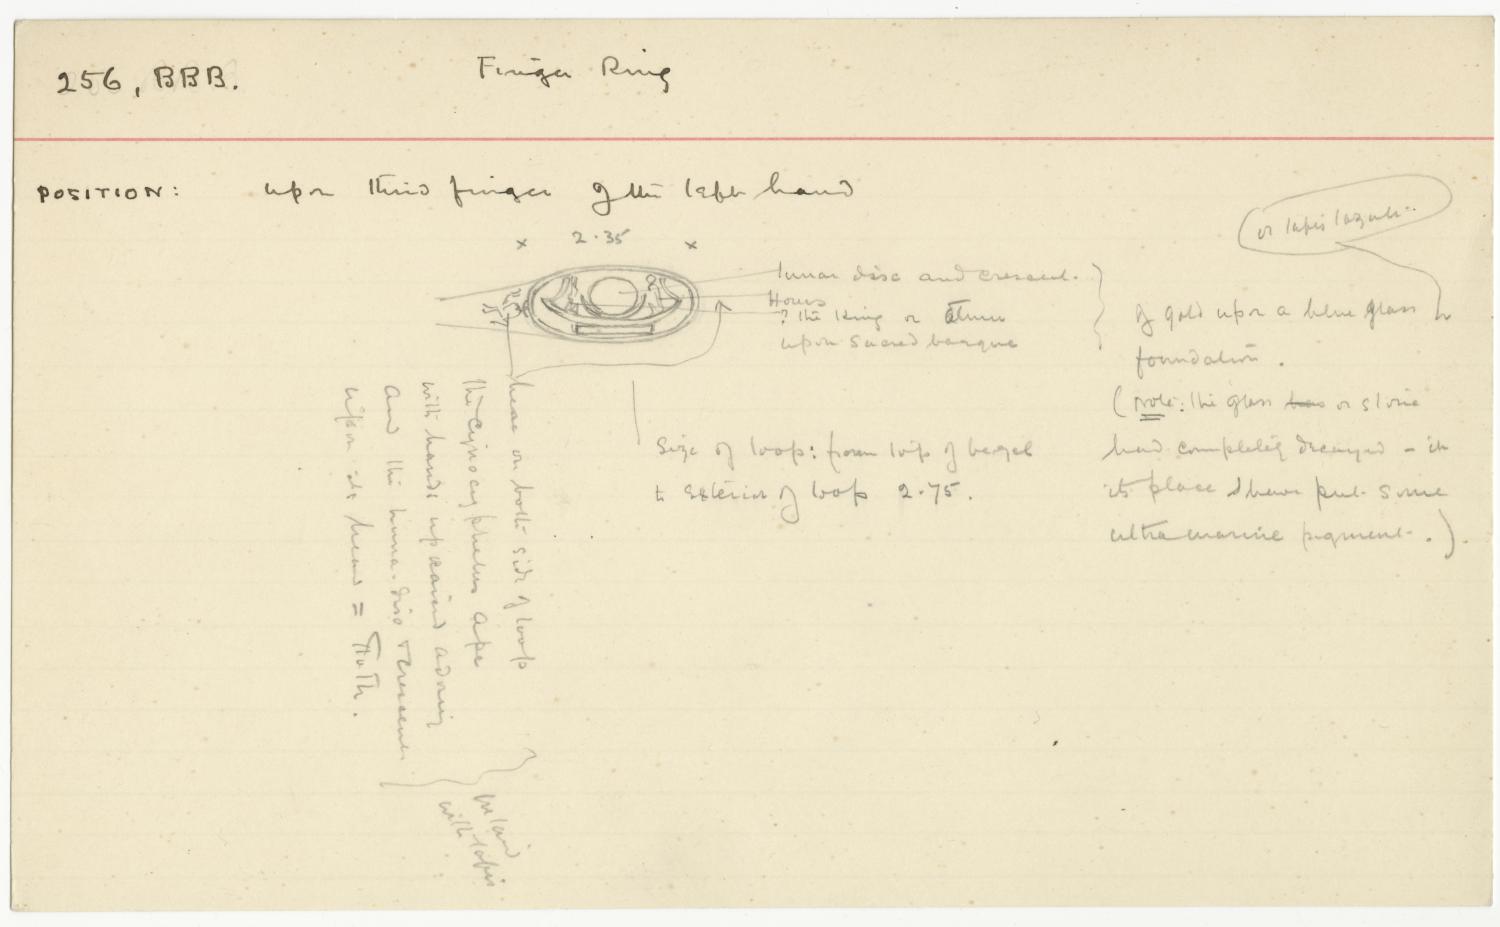 256, BBB.
Finger Ring
POSITION: upon third finger of the left hand
x 2.35 x
lunar disc and crescent.
Horus
? the King or Atum
upon sacred barque
or lapis lazuli
of gold upon a blue glass
foundation.
(Note: the glass has or stone
had completely decayed - in
its place I have put some
ultra marine pigment.).
Size of loop: from top of bezel
to exterior of loop 2.75.
here on both side of loop
the cynocephelus ape
with hands upraised adoring
and the luna-disc + crescent
upon its head = Thoth.
inlaid
with lapis